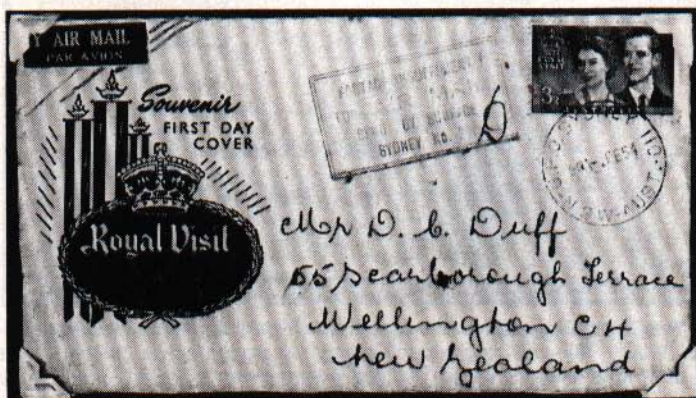 Y AIR MAIL
PAR AVION
Souvenir
FIRST DAY
COVER
Royal Visit
POSTAGE
BY
SYDNEY
3
SYDNEY
N.S.W-AUST.
FE54
Mr D. C. Duff
55 Scarborough Terrace
Wellington C4
New Zealand